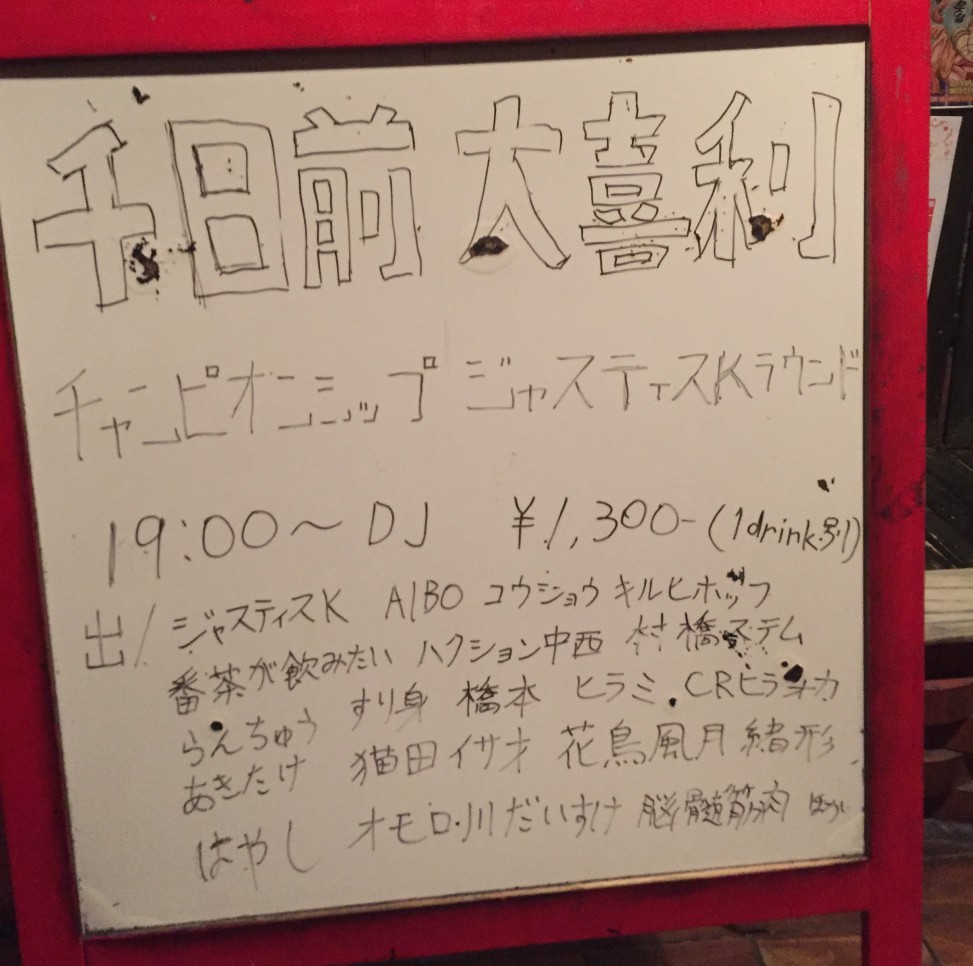 千日前 大喜利
チャンピオンシップ ジャスティスKラウンド
19:00～DJ ¥1,300-(1drink別)
出/ ジャスティスK AIBO コウショウ キルヒホッフ
番茶が飲みたい ハクション中西 村橋ステム
らんちゅう すり身 橋本 ヒラミ CRヒラオカ
あきたけ 猫田イサオ 花鳥風月緒形
はやし オモロ川だいすけ 脳髄筋肉 ほか